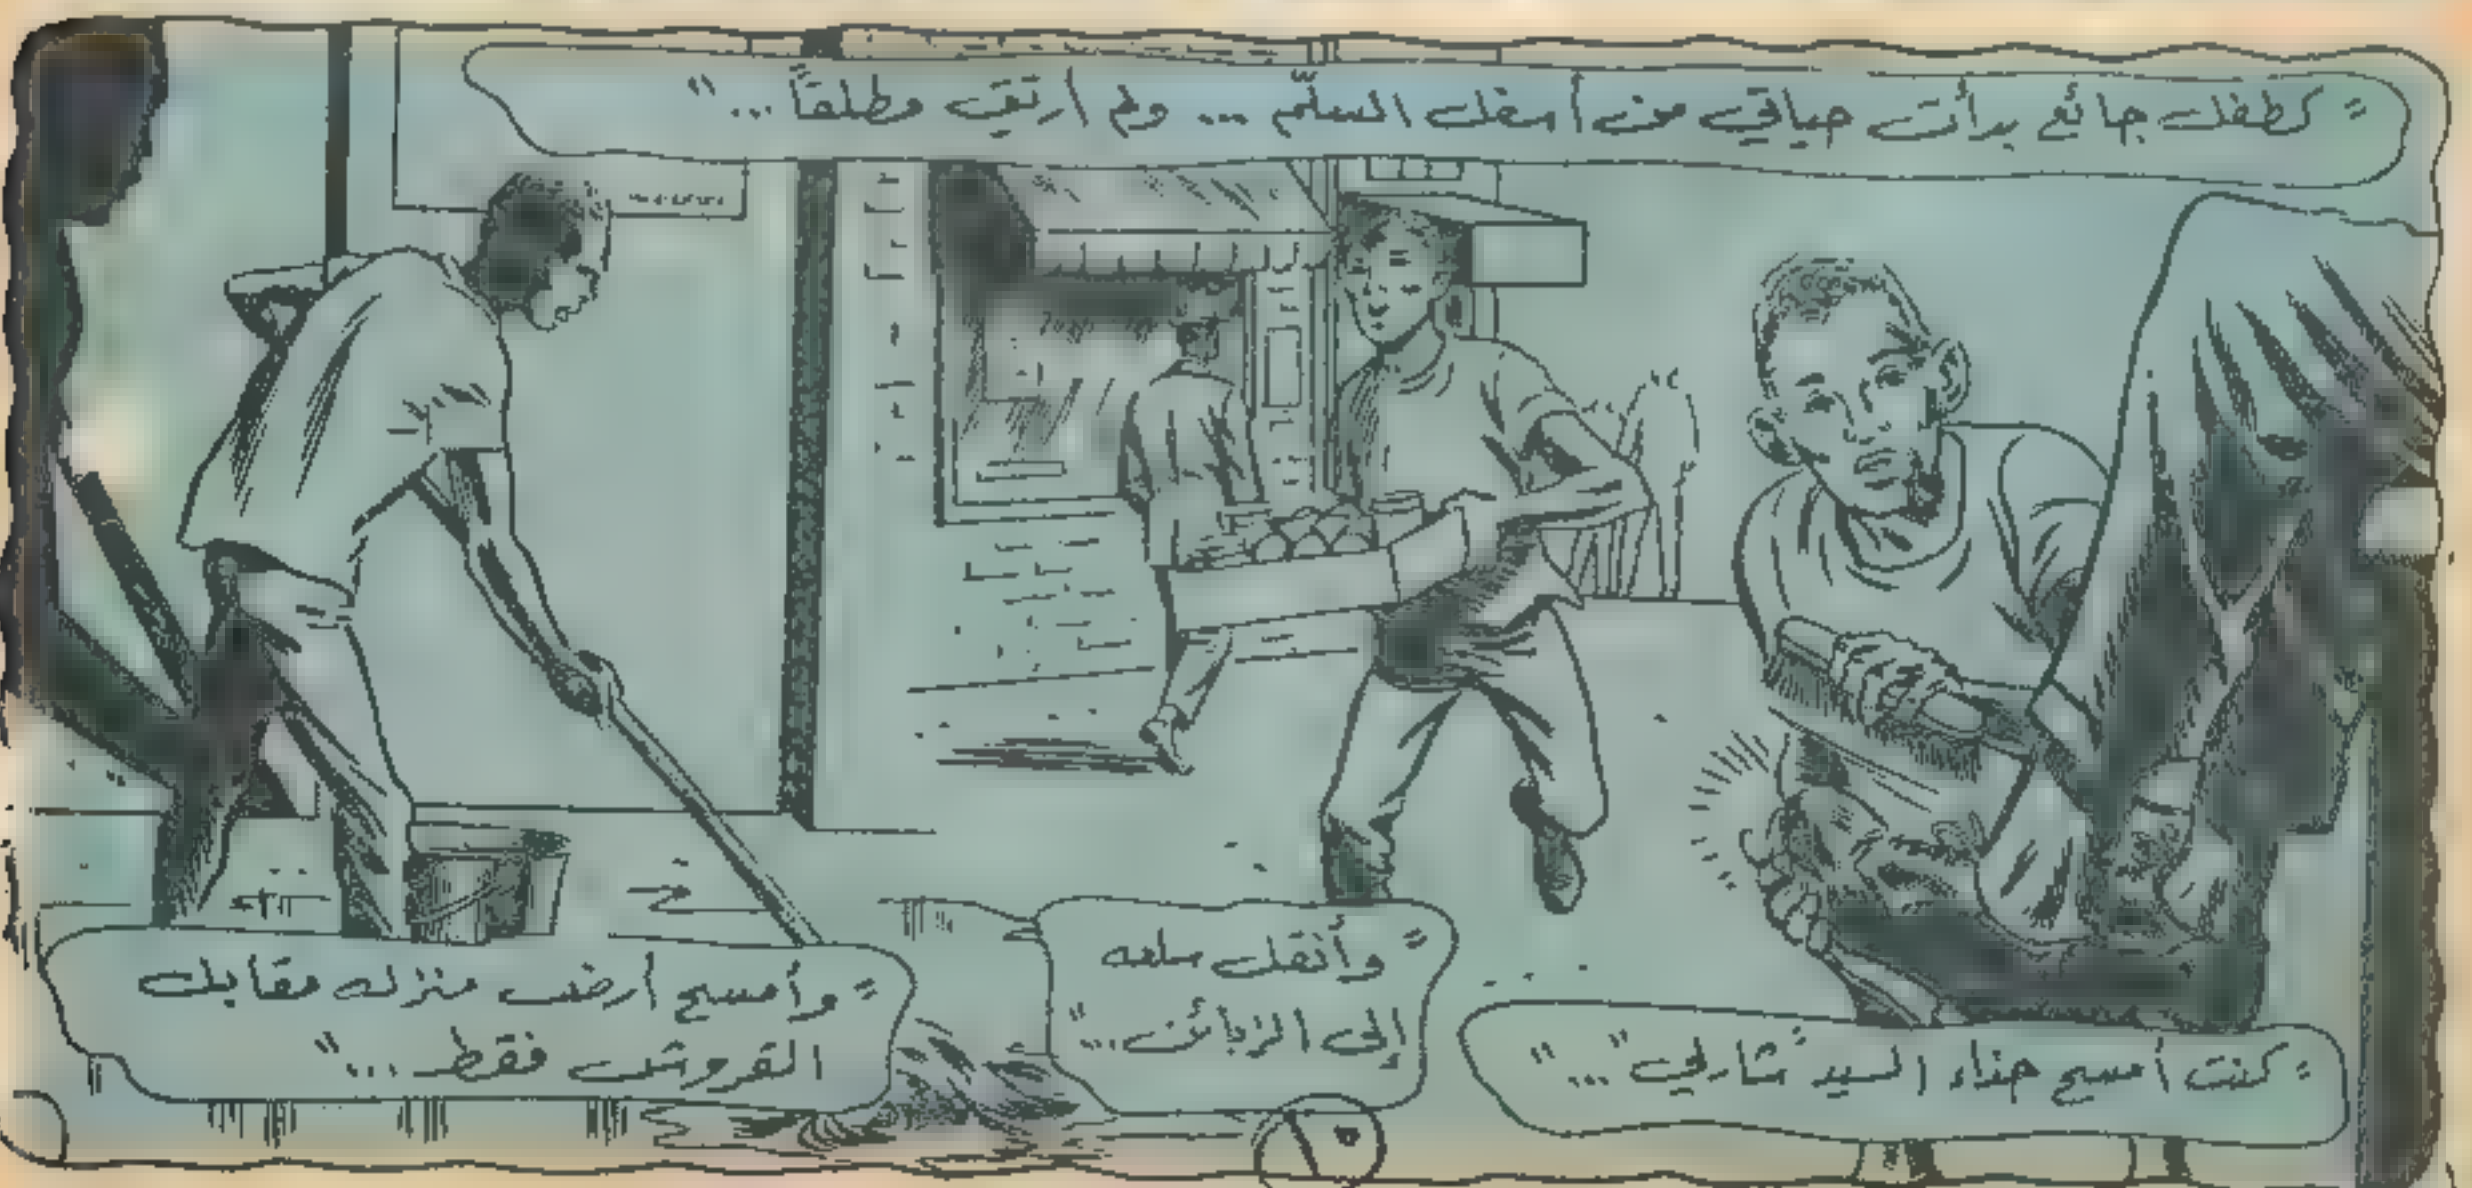 "كطفل جائع بدأت حياتي من أسفل السلّم ... ولم أرتقِ مطلقاً ..."
"كنت أمسح حذاء السيد "شارلي" ..."
"وأنقل سلعه
إلى الزبائن ..."
"وأمسح أرض منزله مقابل
القروش فقط ..."